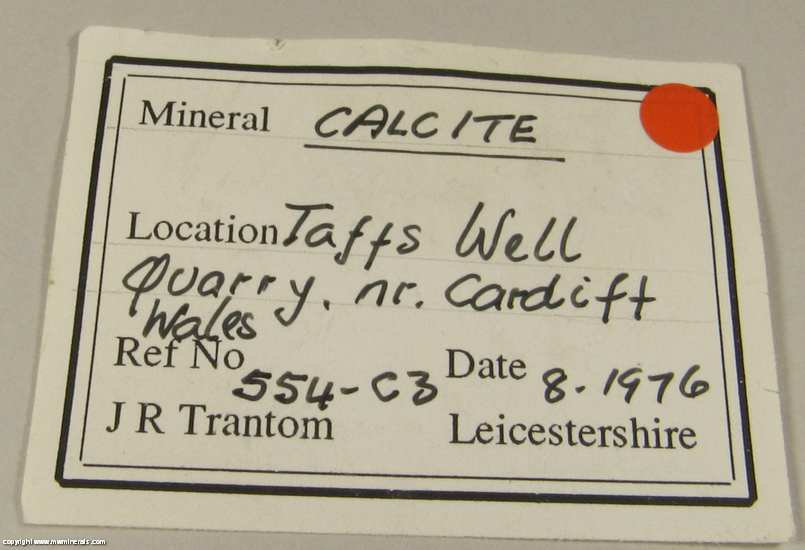 Mineral CALCITE
Location Taffs Well
Quarry. nr. Cardiff
Wales
Ref No 554-C3 Date 8.1976
J R Trantom Leicestershire
copyright www.mwminerals.com